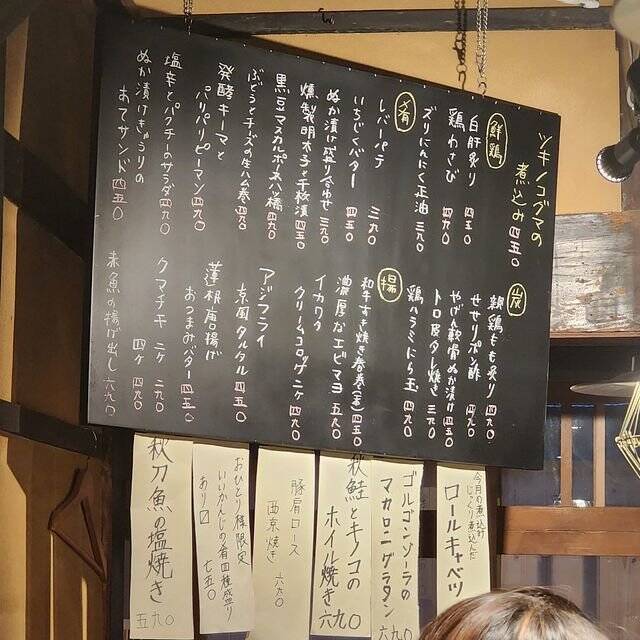 ツキノコグマの
煮込み 四五〇
鮮鶏
白肝炙り 四五〇
鶏わさび 四九〇
ズリにんにく正油 三九〇
肴
レバーパテ 三九〇
いちじくバター 四五〇
ぬか漬け盛り合わせ 三九〇
燻製明太子と千枚漬 四五〇
黒豆マスカルポーネ八ツ橋 四九〇
ぶどうとチーズの生ハム巻 四九〇
発酵キーマと
パリパリピーマン 四九〇
塩辛とパクチーのサラダ 四九〇
ぬか漬けきゅうりの
あてサンド 四五〇
炭
親鶏もも炙り 四九〇
せせりポン酢 四九〇
やげん軟骨ぬか漬け 四五〇
トロ皮タレ焼き 三九〇
鶏ハラミにら玉 四九〇
揚
和牛すき焼き春巻(壱) 四五〇
濃厚なエビマヨ 五九〇
イカワタ
クリームコロッケ 二ケ 四九〇
アジフライ
京風タルタル 四五〇
蓮根唐揚げ
おつまみバター 四五〇
クマチキ 二ケ 二九〇
四ケ 四九〇
赤魚の揚げ出し 六九〇
今月の煮込み
じっくり煮込んだ
ロールキャベツ
ゴルゴンゾーラの
マカロニグラタン 六九〇
秋鮭とキノコの
ホイル焼き 六九〇
豚肩ロース
西京焼き 六九〇
おひとり様限定
いいかんじの肴四種盛り
あり〼 七五〇
秋刀魚の塩焼き 五九〇